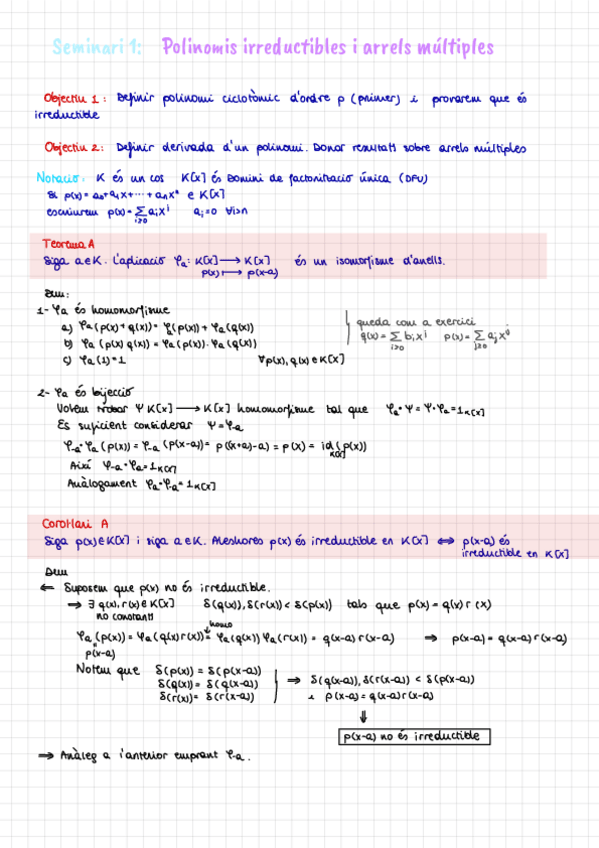 Seminari 1: Polinomis irreductibles i arrels múltiples
Objectiu 1: Definir polinomi ciclotòmic d'ordre p (primer) i provarem que és
irreductible
Objectiu 2: Definir derivada d'un polinomi. Donar resultats sobre arrels múltiples
Notació: K és un cos K[x] és Domini de factorització única (DFU)
Si p(x) = a₀+a₁x+···+aₙxⁿ ∈ K[x]
escriurem p(x) = ∑_{i≥0} aᵢxⁱ aᵢ=0 ∀i>n
Teorema A
Siga a∈K. L'aplicació φₐ: K[x] ⟶ K[x] és un isomorfisme d'anells.
p(x) ⟼ p(x-a)
Dem:
1- φₐ és homomorfisme
a) φₐ(p(x)+q(x)) = φₐ(p(x)) + φₐ(q(x))
b) φₐ(p(x)q(x)) = φₐ(p(x))·φₐ(q(x))
c) φₐ(1)=1 ∀p(x),q(x)∈K[x]
queda com a exercici
q(x)=∑_{i≥0} bᵢxⁱ p(x)=∑_{j≥0} aⱼxʲ
2- φₐ és bijecció
Volem trobar Ψ K[x] ⟶ K[x] homomorfisme tal que φₐ∘Ψ = Ψ∘φₐ = 1_{K[x]}
Es suficient considerar Ψ=φ₋ₐ
φ₋ₐ∘φₐ(p(x)) = φ₋ₐ(p(x-a)) = p((x+a)-a) = p(x) = id_{K[x]}(p(x))
Així φ₋ₐ∘φₐ = 1_{K[x]}
Anàlogament φₐ∘φ₋ₐ = 1_{K[x]}
Corol·lari A
Siga p(x)∈K[x] i siga a∈K. Aleshores p(x) és irreductible en K[x] ⟺ p(x-a) és
irreductible en K[x]
Dem
⇐ Suposem que p(x) no és irreductible.
⇒ ∃ q(x), r(x)∈K[x] δ(q(x)), δ(r(x)) < δ(p(x)) tals que p(x) = q(x) r(x)
no constants
homo
φₐ(p(x)) = φₐ(q(x)r(x)) = φₐ(q(x)) φₐ(r(x)) = q(x-a) r(x-a) ⇒ p(x-a) = q(x-a) r(x-a)
p(x-a)
Notem que δ(p(x)) = δ(p(x-a))
δ(q(x)) = δ(q(x-a))
δ(r(x)) = δ(r(x-a))
⇒ δ(q(x-a)), δ(r(x-a)) < δ(p(x-a))
i p(x-a) = q(x-a) r(x-a)
⇓
p(x-a) no és irreductible
⇒ Anàleg a l'anterior emprant φ₋ₐ.